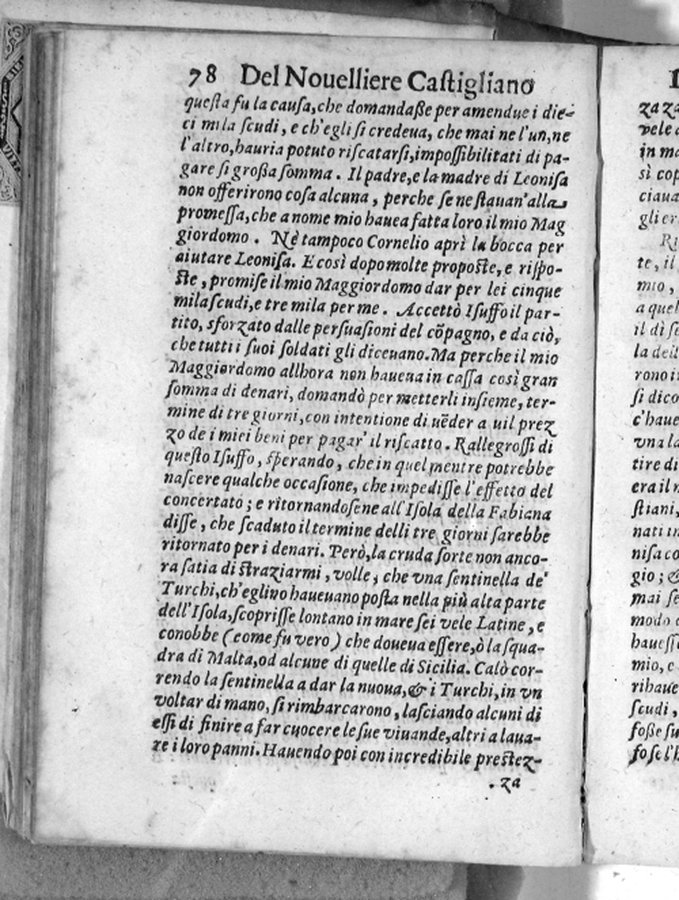 78 Del Nouelliere Caſtigliano
queſta fu la cauſa, che domandaße per amendue i die-
ci mila ſcudi, e ch'egli ſi credeua, che mai ne l'un, ne
l'altro, hauria potuto riſcatarſi, impoſſibilitati di pa-
gare ſi großa ſomma. Il padre, e la madre di Leoniſa
non offerirono coſa alcuna, perche ſe ne ſtauan'alla
promeſſa, che a nome mio hauea fatta loro il mio Mag
giordomo. Nè tampoco Cornelio aprì la bocca per
aiutare Leoniſa. E così dopo molte propoſte, e riſpo-
ſte, promiſe il mio Maggiordomo dar per lei cinque
mila ſcudi, e tre mila per me. Accettò Iſuffo il par-
tito, sforzato dalle perſuaſioni del cōpagno, e da ciò,
che tutti i ſuoi ſoldati gli diceuano. Ma perche il mio
Maggiordomo allhora non haueua in caſſa così gran
ſomma di denari, domandò per metterli inſieme, ter-
mine di tre giorni, con intentione di uēder a uil prez
zo de i miei beni per pagar' il riſcatto. Rallegroſſi di
queſto Iſuffo, ſperando, che in quel mentre potrebbe
naſcere qualche occaſione, che impediſſe l'effetto del
concertato; e ritornandoſene all'Iſola della Fabiana
diſſe, che ſcaduto il termine delli tre giorni ſarebbe
ritornato per i denari. Però, la cruda ſorte non anco-
ra ſatia di ſtraziarmi, volle, che vna ſentinella de'
Turchi, ch'eglino haueuano poſta nella più alta parte
dell'Iſola, ſcopriſſe lontano in mare ſei vele Latine, e
conobbe (come fu vero) che doueua eſſere, ò la ſqua-
dra di Malta, od alcune di quelle di Sicilia. Calò cor-
rendo la ſentinella a dar la nuoua, & i Turchi, in vn
voltar di mano, ſi rimbarcarono, laſciando alcuni di
eſſi di finire a far cuocere le ſue viuande, altri a laua-
re i loro panni. Hauendo poi con incredibile preſtez-
za
za za
vele a
in ma
sì cop
ciaua
gli er
te, il
mio,
a quel
il dì ſe
la deil
rono i
ſi dico
c'haue
vna la
tire di
era il
ſtiani,
nati in
niſa co
gio; &
mai ſe
modo
haueſſ
mio, e
rihaue
ſcudi,
foße ſu
foſe l'h